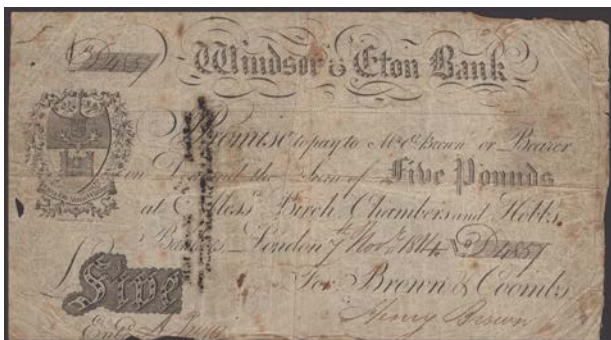 No D4857
Windsor & Eton Bank
I Promise to pay to Mr. C. Brown or Bearer
on Demand the Sum of Five Pounds
at Birch Chambers and Hobbs,
Bankers London 7th Novr 1814 No D4857
For Brown & Coombs
£ Five
Henry Brown
Entd